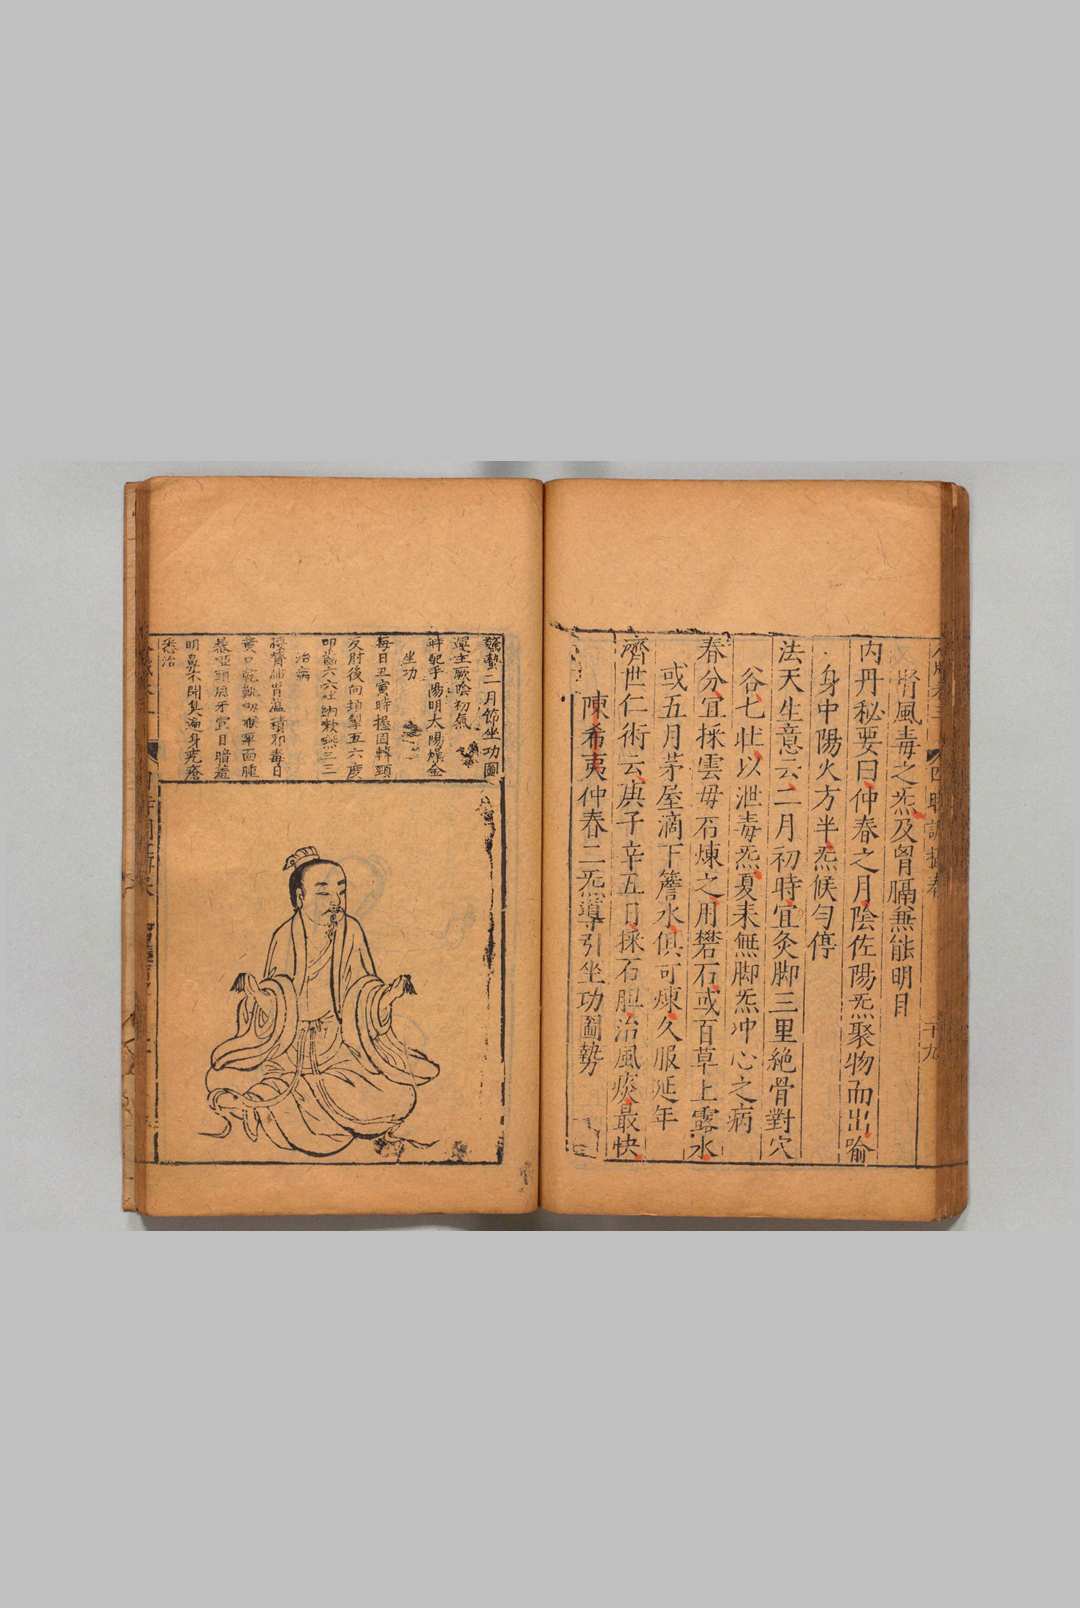 腎風毒之炁及胷膈無能明目
内丹秘要曰仲春之月陰佐陽炁聚物而出喻
身中陽火方半炁候勻停
法天生意云二月初時宜灸脚三里絶骨對穴
谷七壯以泄毒炁夏来無脚炁冲心之病
春分宜採雲母石煉之用礬石或百草上露水
或五月茅屋滴下簷水俱可煉久服延年
濟世仁術云庚子辛丑日採石膽治風痰最快
陳希夷仲春二炁導引坐功圖勢
驚蟄二月節坐功圖
運主厥陰初氣
時配手陽明大陽燥金
坐功
每日丑寅時握固轉頸
反肘後向頓掣五六度
叩齒六六吐納漱嚥三三
治病
腰膂肺胃蘊積邪毒目
黄口乾鼽衂喉痺面腫
暴啞頭風牙宣目暗羞
明鼻不聞臭遍身疙瘡
悉治